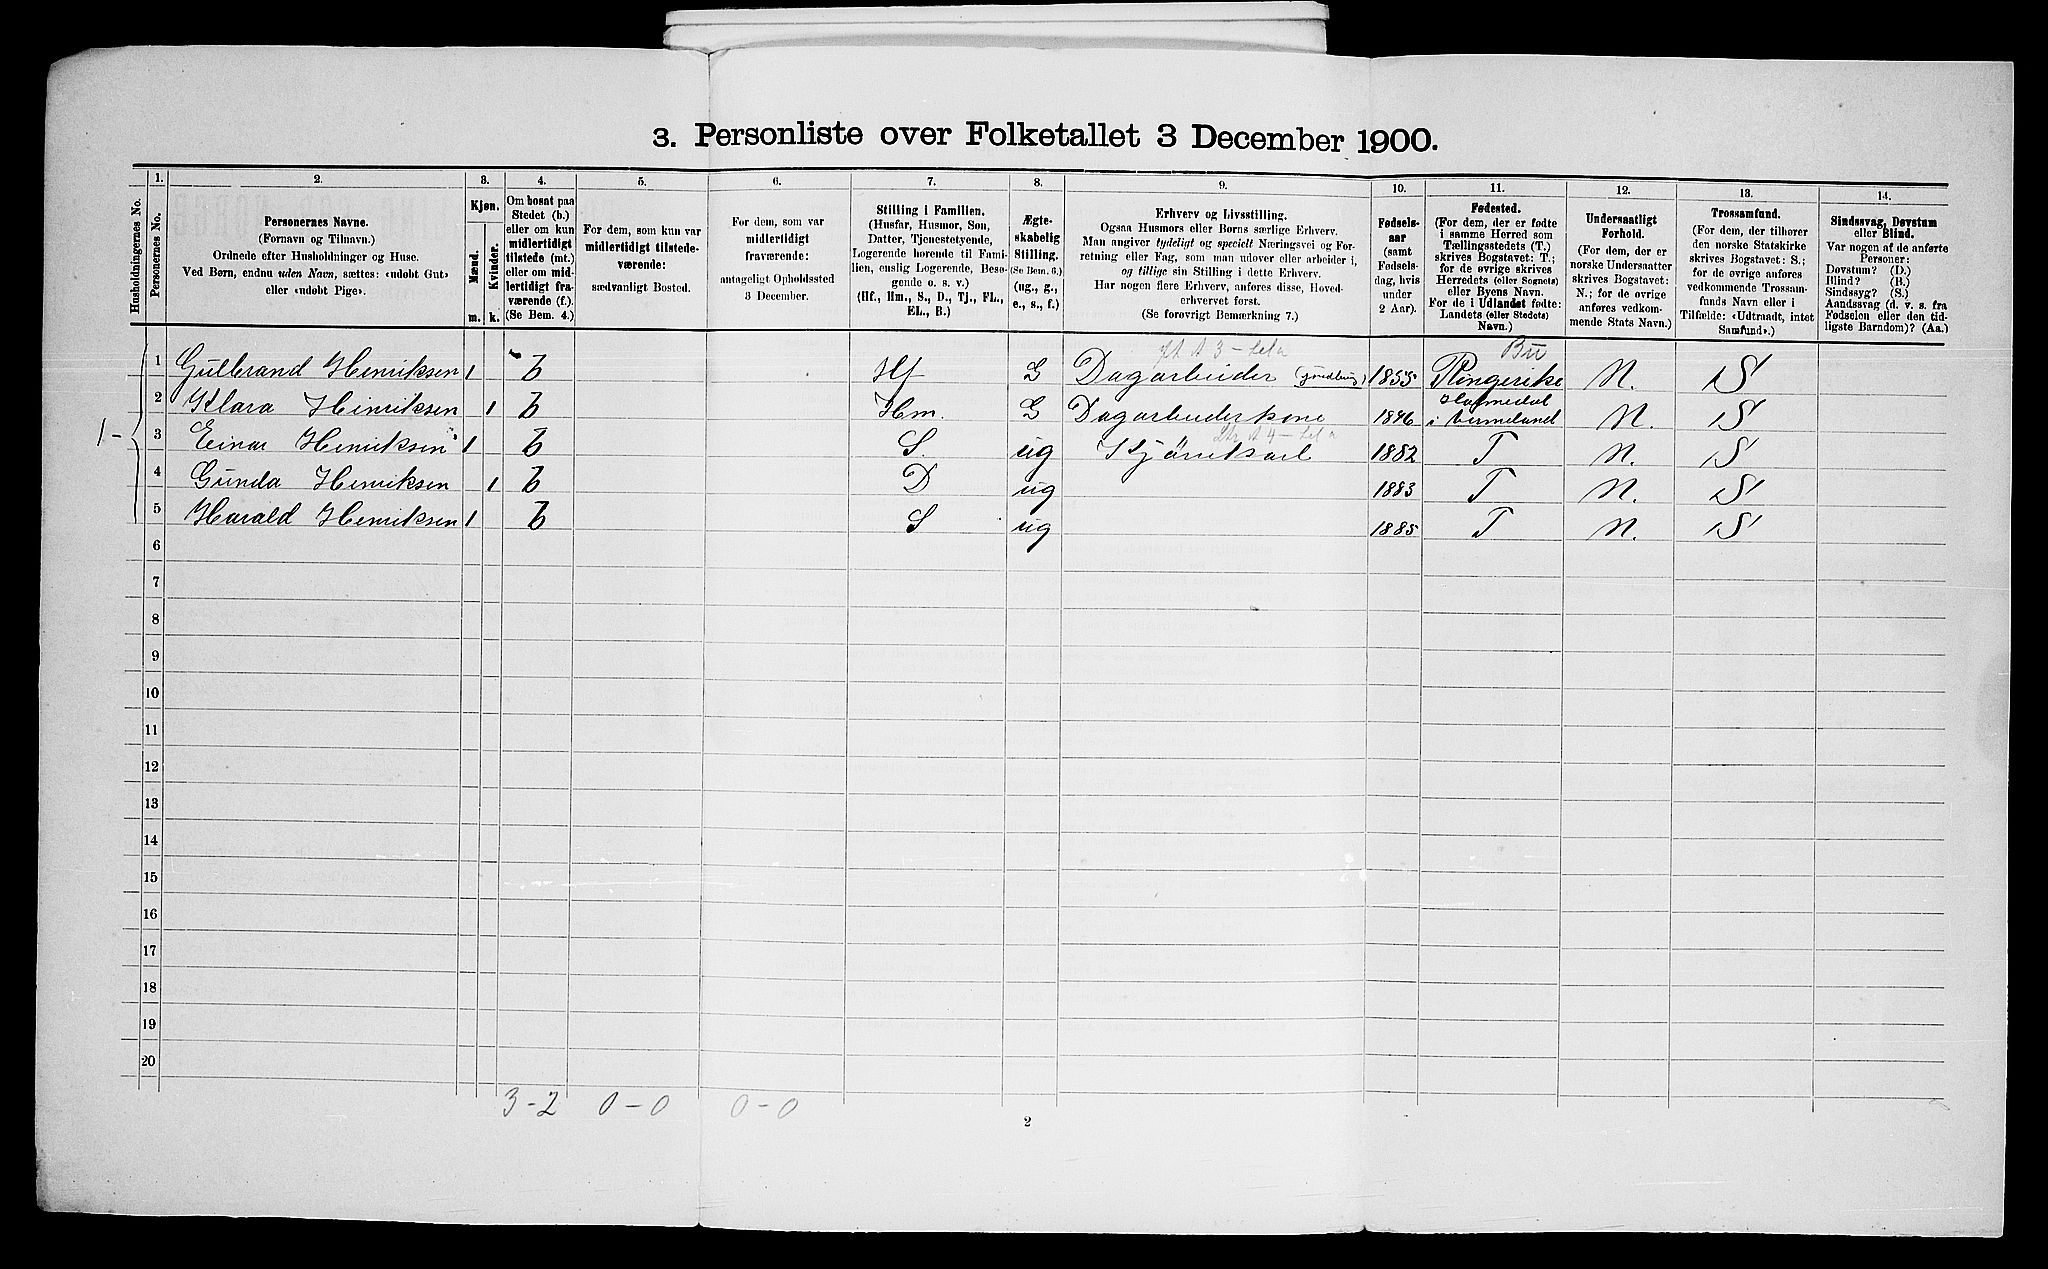 3. Personliste over Folketallet 3 December 1900.
Husholdningernes No.
1.
Personernes No.
2.
Personernes Navne.
(Fornavn og Tilnavn.)
Ordnede efter Husholdninger og Huse.
Ved Børn, endnu uden Navn, sættes: «udøbt Gut»
eller «udøbt Pige».
3.
Kjøn.
Mænd.
Kvinder.
m. k.
4.
Om bosat paa
Stedet (b.)
eller om kun
midlertidigt
tilstede (mt.)
eller om mid-
lertidigt fra-
værende (f.).
(Se Bem. 4.)
5.
For dem, som kun var
midlertidigt tilstede-
værende:
sædvanligt Bosted.
6.
For dem, som var
midlertidigt
fraværende:
antageligt Opholdssted
3 December.
7.
Stilling i Familien.
(Husfar, Husmor, Søn,
Datter, Tjenestetyende,
Logerende hørende til Fami-
lien, enslig Logerende, Besø-
gende o. s. v.)
(Hf., Hm., S., D., Tj., FL.,
EL., B.)
8.
Ægte-
skabelig
Stilling.
(Se Bem. 6.)
(ug., g.,
e., s., f.)
9.
Erhverv og Livsstilling.
Ogsaa Husmors eller Børns særlige Erhverv.
Man angiver tydeligt og specielt Næringsvei og For-
retning eller Fag, som man udover eller arbeider i,
og tillige sin Stilling i dette Erhverv.
Har nogen flere Erhverv, anføres disse, Hoved-
erhvervet først.
(Se forøvrigt Bemærkning 7.)
10.
Fødsels-
aar
(samt
Fødsels-
dag, hvis
under
2 Aar).
11.
Fødested.
(For dem, der er fødte
i samme Herred som
Tællingsstedets (T.)
skrives Bogstavet: T.;
for de øvrige skrives
Herredets (eller Sognets)
eller Byens Navn.
For de i Udlandet fødte:
Landets (eller Stedets)
Navn.)
12.
Undersaatligt
Forhold.
(For dem, der er
norske Undersaatter
skrives Bogstavet:
N.; for de øvrige
anføres vedkom-
mende Stats Navn.)
13.
Trossamfund.
(For dem, der tilhører
den norske Statskirke
skrives Bogstavet: S.;
for de øvrige anføres
vedkommende Trossam-
funds Navn eller i
Tilfælde: «Udtraadt, intet
Samfund».)
14.
Sindssvag, Døvstum
eller Blind.
Var nogen af de anførte
Personer:
Døvstum? (D.)
Blind? (B.)
Sindssyg? (S.)
Aandssvag (d. v. s. fra
Fødselen eller den tid-
ligste Barndom)? (Aa.)
Bu
1 Gulbrand Henriksen 1 b Hf G Dagarbeider 1855 Ringerike N. S
2 Klara Hinriksen 1 b Hm. G Dagarbeiderkone 1846 i Vermeland N. S
1 -
3 Einar Henriksen 1 b S. ug 1882 T N. S
4 Gunda Henriksen 1 b D ug 1883 T N. S
5 Harald Henriksen 1 b S ug 1885 T N. S
6
7
8
9
10
11
12
13
14
15
16
17
18
19
20
3-2 0-0 0-0
2